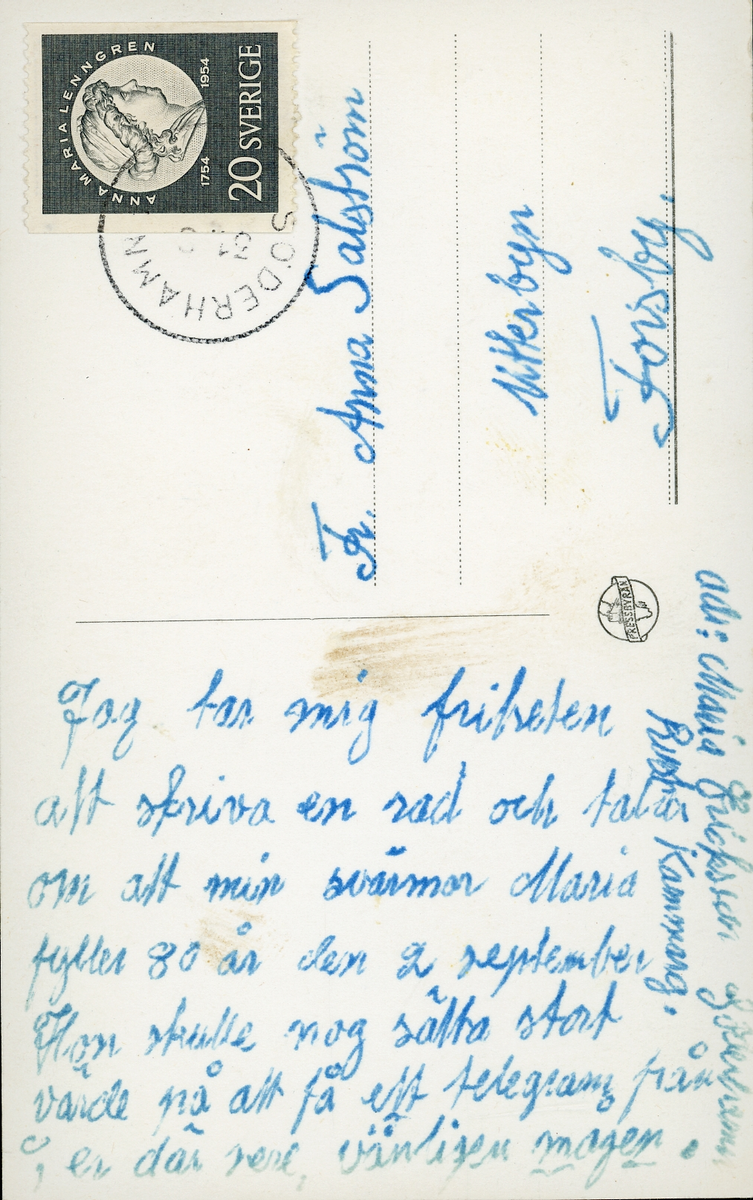 ANNA MARIA LENNGREN
1754 1954
20 SVERIGE
SÖDERHAMN
31
Fr. Anna Salström
Utterbyn
Forsby.
PRESSBYRÅN
Jag tar mig friheten
att skriva en rad och tala
om att min svärmor Maria
fyller 80 år den 2 september
Hon skulle nog sätta stort
värde på att få ett telegram från
er där vere, vänligen magen.
adr: Maria Eriksson